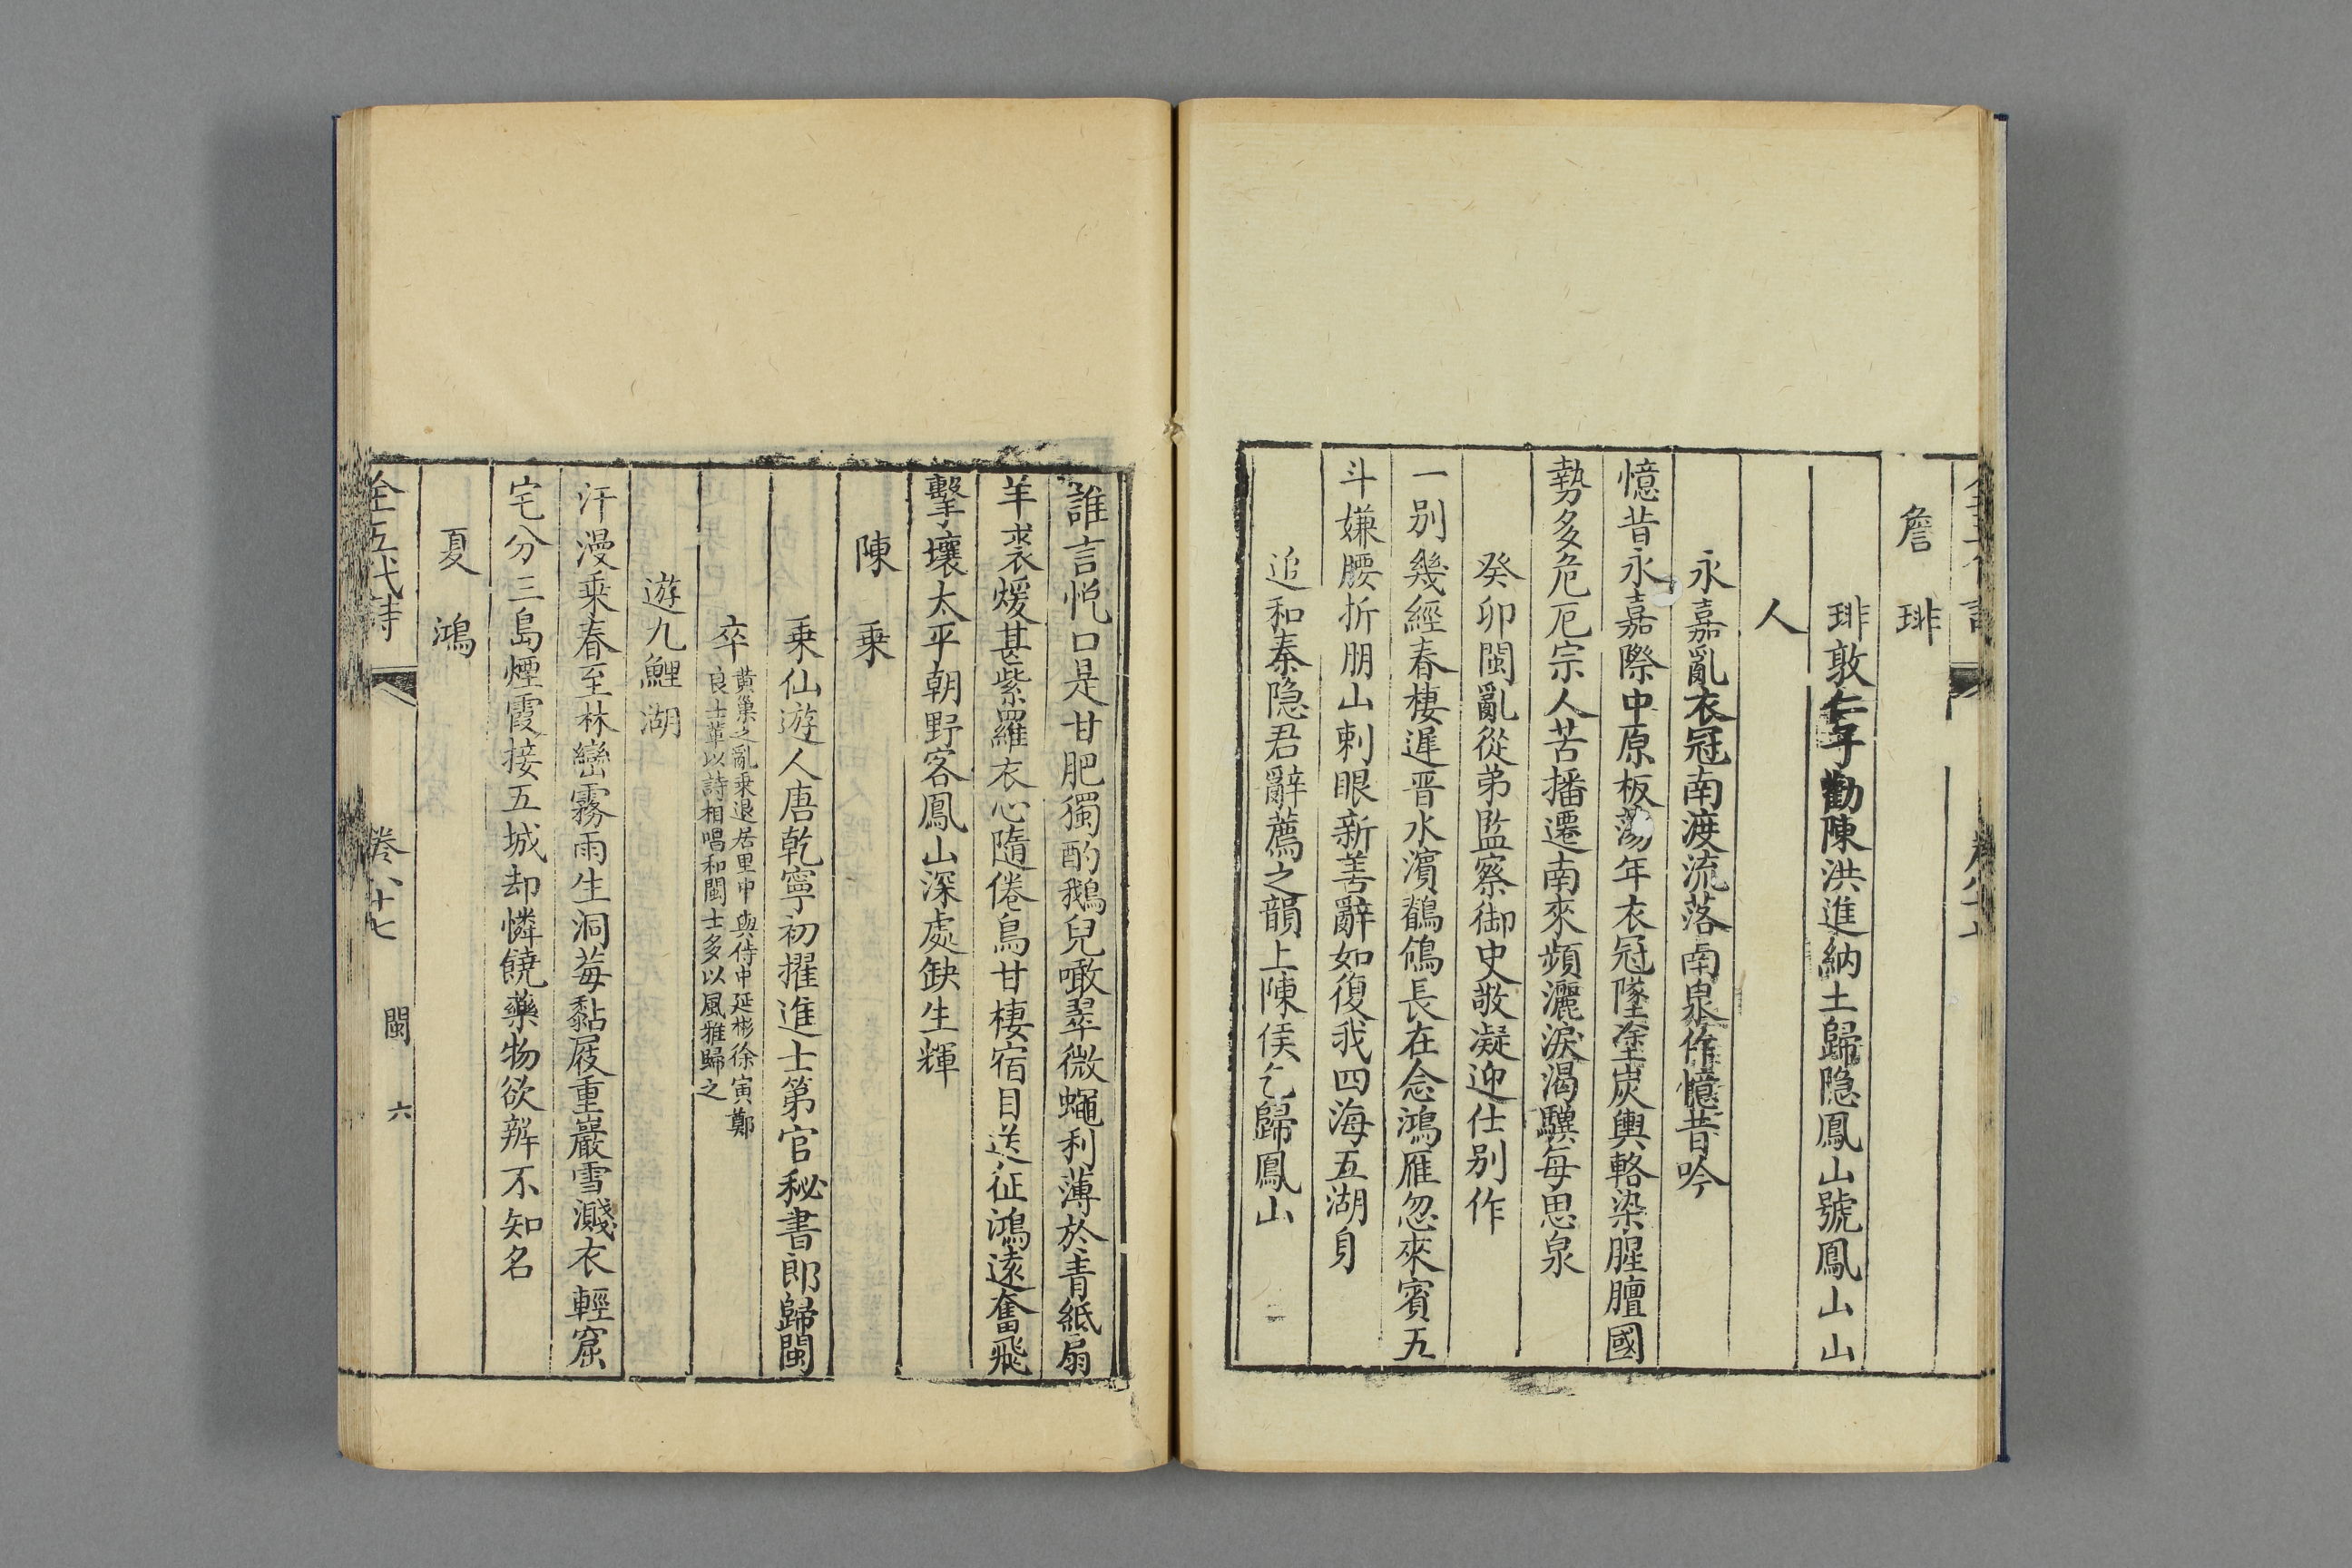 詹 琲
琲敦仁子勸陳洪進納土歸隐鳳山號鳳山山
人
永嘉亂衣冠南渡流落南泉作憶昔吟
憶昔永嘉際中原板蕩年衣冠墜塗炭輿輅染腥膻國
勢多危厄宗人苦播遷南來頻灑淚渴驥每思泉
癸卯閩亂從弟監察御史敬凝迎仕别作
一别幾經春棲遲晋水濱鶺鴒長在念鴻雁忽來賓五
斗嫌腰折朋山刺眼新善辭如復我四海五湖身
追和秦隐君辭薦之韻上陳侯乞歸鳳山
誰言悅口是甘肥獨酌鵝兒噉翠微蠅利薄於青紙扇
羊裘煖甚紫羅衣心隨倦鳥甘棲宿目送征鴻遠奮飛
擊壤太平朝野客鳳山深處缺生輝
陳 乗
乗仙遊人唐乾寧初擢進士第官秘書郎歸閩
卒
黄巢之亂乗退居里中與侍中延彬徐寅鄭
良士輩以詩相唱和閩士多以風雅歸之
遊九鯉湖
汗漫乗春至林巒霧雨生洞莓黏屐重巖雪濺衣輕窟
宅分三島煙霞接五城却憐饒藥物欲辨不知名
夏 鴻
全五代詩 卷八十七 閩 六